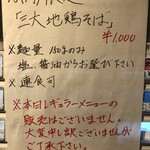 「三大地鶏そば」
¥1,000
※麺量 150gのみ
塩、醤油からお選び下さい
※連食可
※本日レギュラーメニューの
販売はございません。
大変申し訳ございませんが
ご了承下さい。